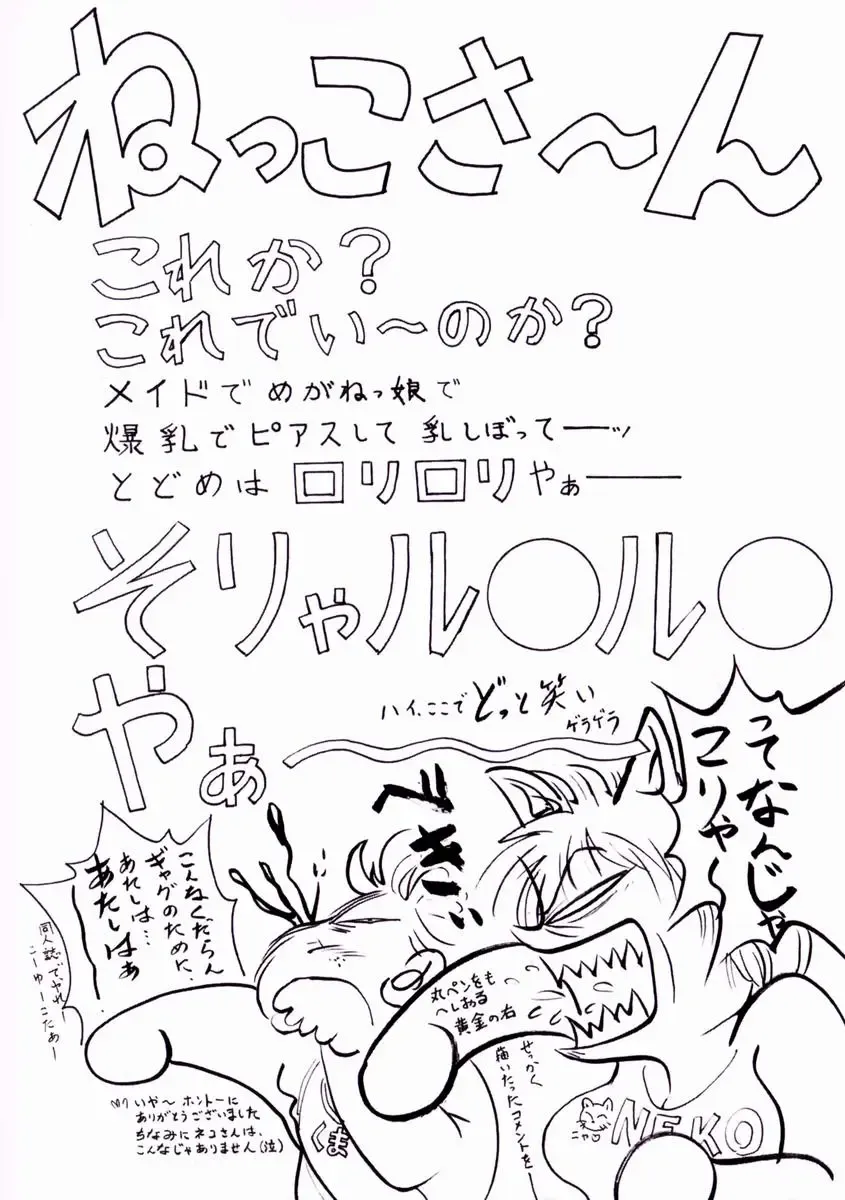 ねっこさ〜ん
これか?
これでい〜のか?
メイドでめがねっ娘で
爆乳でピアスして乳しぼってーッ
とどめはロリロリやぁ——
そりゃル○ル○
やぁ
ハイ、ここでどっと笑い
ゲラゲラ
ってなんじゃ
こりゃ〜
べきぃ
こんなくだらん
ギャグのために、
あたしは…
あたしはぁ
同人誌でやれ
こーゆーこたぁー
丸ペンをも
へしおる
黄金の右
せっかく
描いたったコメントを—
いや〜ホントーに
ありがとうございました
ちなみにネコさんは、
こんなじゃありません(泣)
くま
ニャ
NEKO